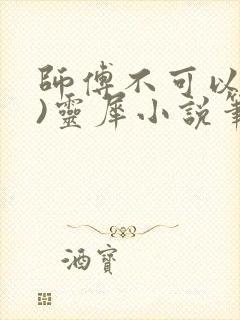 師傅不可以
)靈犀小說筆
酒寶